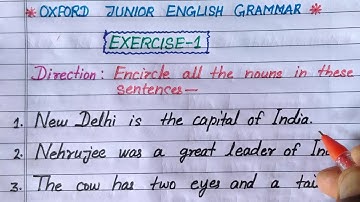 * OXFORD JUNIOR ENGLISH GRAMMAR *
EXERCISE-1
Direction: Encircle all the nouns in these
sentences—
1. New Delhi is the capital of India.
2. Nehrujee was a great leader of
3. The cow has two eyes and a